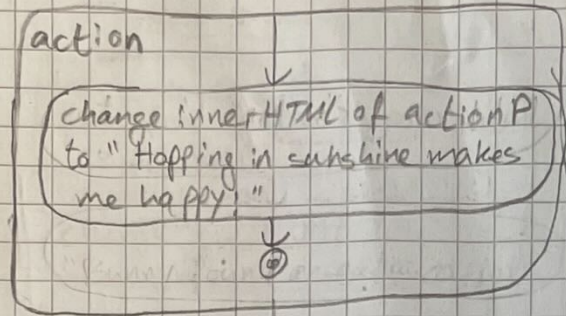 action
change innerHTML of actionP
to "Hopping in sunshine makes
me happy!"